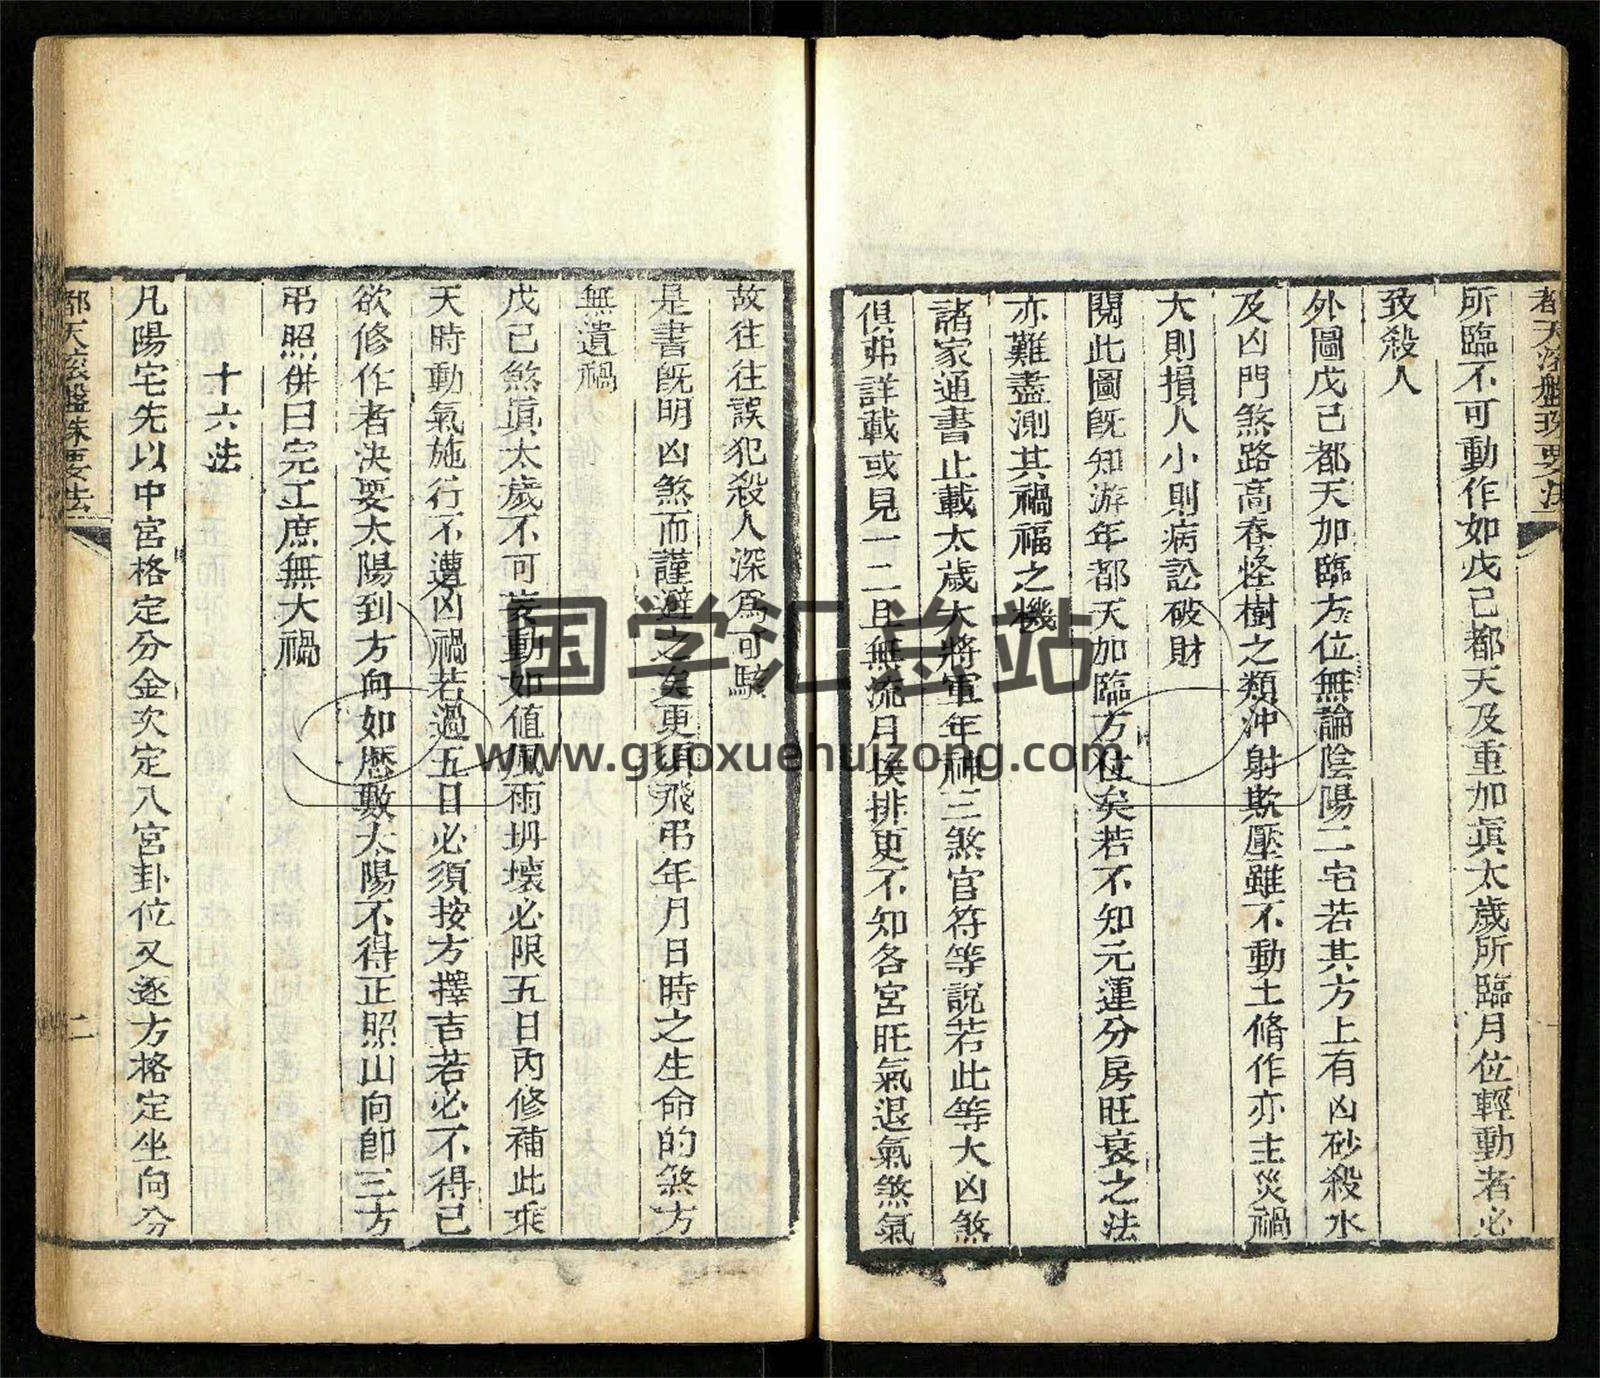 所臨不可動作如戊己都天及重加眞太歲所臨月位輕動者必
致殺人
外圖戊己都天加臨方位無論陰陽二宅若其方上有凶砂殺水
及凶門煞路高春怪樹之類沖射欺壓雖不動土脩作亦主災禍
大則損人小則病訟破財
閱此圖旣知游年都天加臨方位矣若不知元運分房旺衰之法
亦難盡測其禍福之機
諸家通書止載太歲大將軍年神三煞官符等說若此等大凶煞
俱弗詳載或見一二且無流月挨排更不知各宮旺氣退氣煞氣
故往往誤犯殺人深爲可駭
是書旣明凶煞而謹避之矣更須飛弔年月日時之生命的煞方
無遺禍
戊己煞眞太歲不可妄動如值風雨坍壞必限五日內修補此乘
天時動氣施行不遭凶禍若過五日必須按方擇吉若必不得已
欲修作者決要太陽到方向如歷數太陽不得正照山向卽三方
弔照併日完工庶無大禍
十六法
凡陽宅先以中宮格定分金次定八宮卦位又逐方格定坐向分
二
国学汇总站
www.guoxuehuizong.com